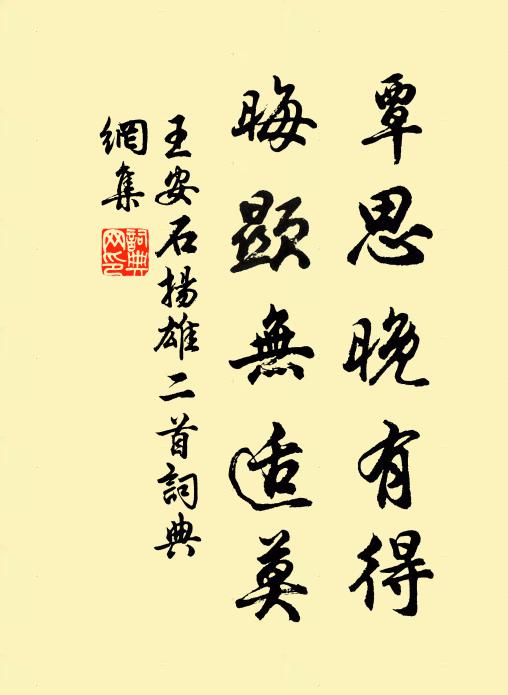 覃思晚有得
晦顯無适莫
王安石揚雄二首詞典
網集
詞典
网印